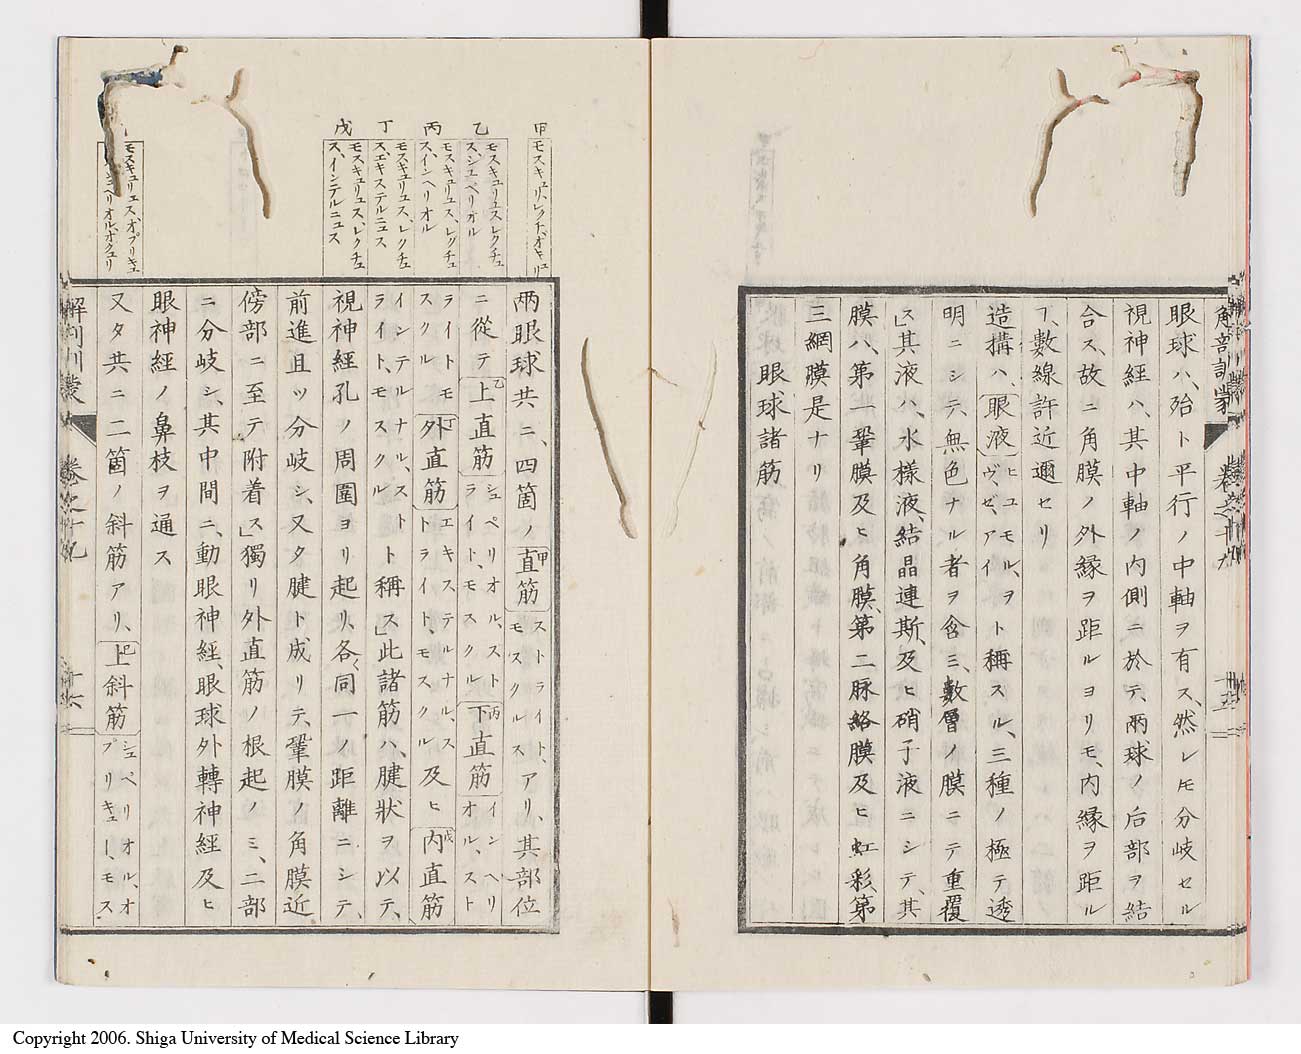 解剖訓蒙
卷之十九
十五
眼球ハ、殆ト平行ノ中軸ヲ有ス、然レ𪜈分岐セル
視神経ハ、其中軸ノ内側ニ於テ、兩球ノ后部ヲ結
合ス、故ニ角膜ノ外縁ヲ距ルヨリモ、内縁ヲ距ル
ヿ、數線許近邇セリ
造構ハ、眼液ヒユモル、ヲヴ、ゼ、アイト稱スル、三種ノ極テ透
明ニシテ、無色ナル者ヲ含ミ、數層ノ膜ニテ重覆
ス」其液ハ、水樣液、結晶連斯、及ヒ硝子液ニシテ、其
膜ハ、第一鞏膜及ヒ角膜、第二脉絡膜及ヒ虹彩第
三網膜是ナリ
眼球諸筋
甲
モスキュリ、レクチ、ヲキュリ
乙
モスキュリュス、レクチュス、シュペリオル
丙
モスキュリュス、レクチュス、インヘリオル
丁
モスキュリュス、レクチュス、エキステルニュス
戊
モスキュリュス、レクチュス、インテルニュス
モスキュリュス、オブリキュ
ペリオル、オクュリ
兩眼球共ニ、四箇ノ甲直筋ストライト、モスクルス、アリ、其部位
ニ從テ乙上直筋シュペリオル、ストライト、モスクル丙下直筋インヘリオル、スト
ライトモスクル丁外直筋エキステルナル、ストライト、モスクル及ヒ戊内直筋
インテルナル、ストライト、モスクルト稱ス」此諸筋ハ、腱狀ヲ以テ、
視神経孔ノ周圍ヨリ起リ、各〱同一ノ距離ニシテ、
前進且ツ分岐シ、又タ腱ト成リテ、鞏膜ノ角膜近
傍部ニ至テ附着ス」獨リ外直筋ノ根起ノミ、二部
ニ分岐シ、其中間ニ、動眼神経、眼球外轉神経及ヒ
眼神経ノ鼻枝ヲ通ス
又タ共ニ二箇ノ斜筋アリ、己上斜筋シュペリオル、オブリキュー、モス
解剖訓蒙
卷之十九
十六